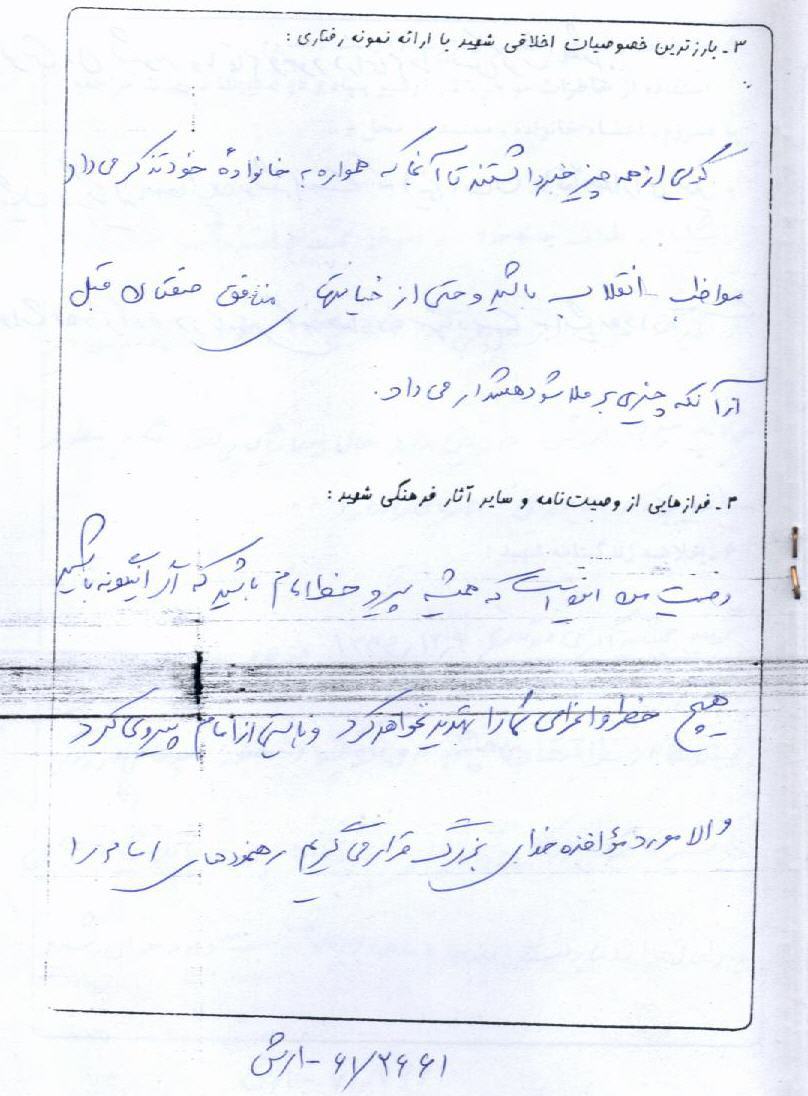 ۳ـ بارزترین خصوصیات اخلاقی شهید با ارائه نمونه رفتاری :
گویی از همه چیز خبر داشتند تا آنجا که همواره به خانوادهٔ خود تذکر می داد
مواظب انقلاب باشید و حتی از خیانتهای منافق صفتان قبل
از آنکه چیزی بر ملا شود هشدار می داد.
۴ـ فرازهایی از وصیت‌نامه و سایر آثار فرهنگی شهید :
وصیت من این است که همیشه پیرو خط امام باشید که اگر اینگونه باشید
هیچ خطر و اعزای شما را تهدید نخواهد کرد و بایستی از امام پیروی کرد
و الا مورد مؤاخذه خدای بزرگ قرار می گیریم رهنمودهای امام را
۶۱/۲۶۶۱ - ارتش